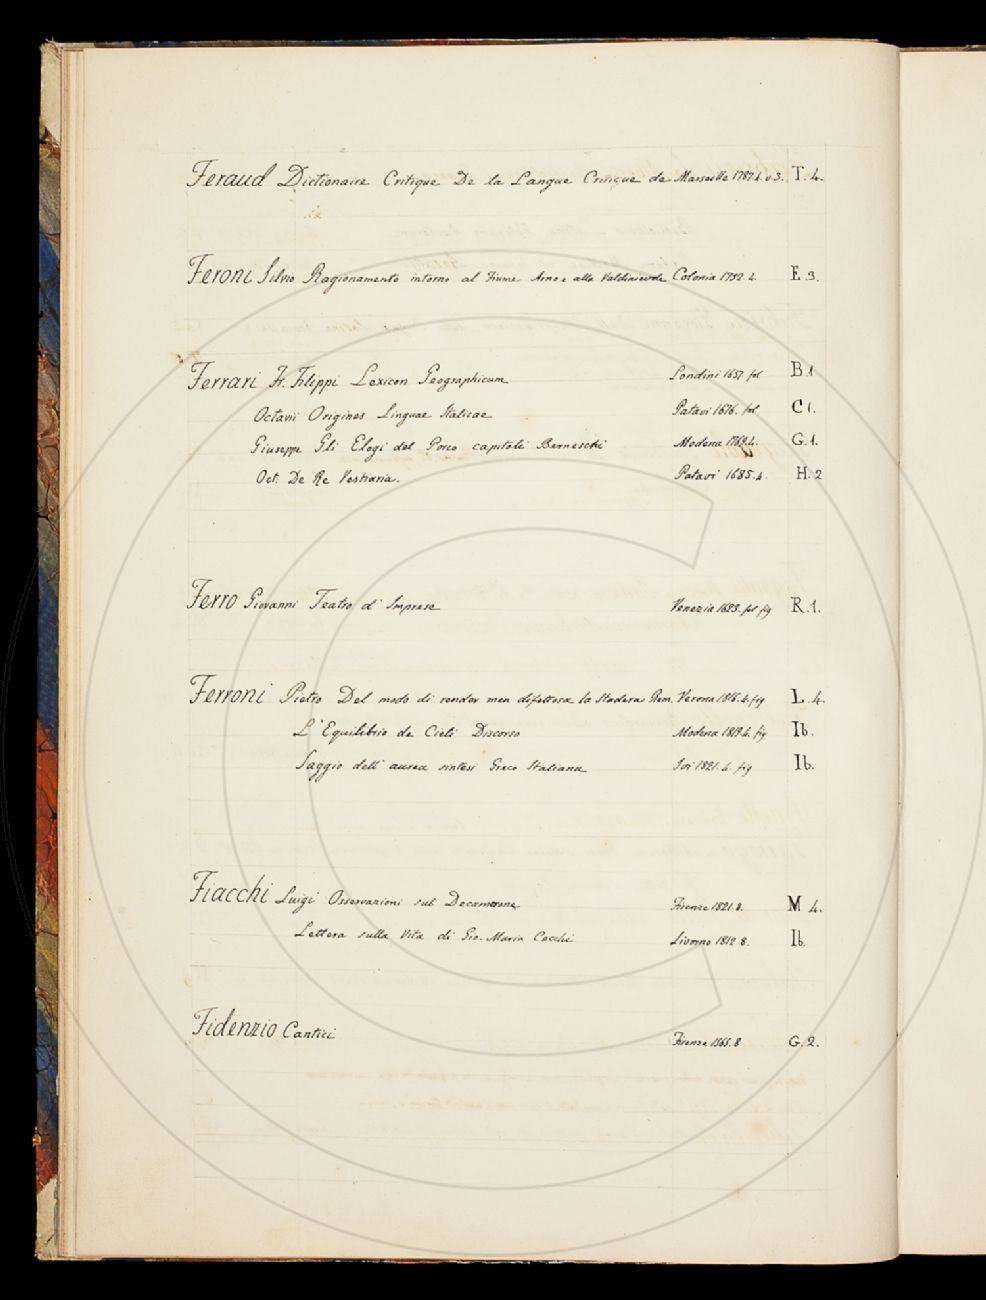 Feraud Dictionaire Critique De la Langue Critique de Marseille 1787.4.v.3. T. 4.
Feroni Silvio Ragionamento intorno al Fiume Arno e alla Valdinievole Colonia 1752. 4. E. 3.
Ferrari Fr. Filippi Lexicon Geographicum Londini 1657. fol B.1
Octavii Origines Linguae Italicae Patavi 1676. fol C 1.
Giuseppe Gli Elogi del Porco capitoli Berneschi Modena 4. G. 1.
Oct. De Re Vestiaria. Patavi 1685. 4. H. 2
Ferro Giovanni Teatro d' Imprese Venezia fol fig R. 1.
Ferroni Pietro Del modo di render men difettosa la Stadera Rom. Verona 1816. 4. fig L. 4.
L' Equilibrio de Cieli Discorso Modena 4. fig Ib.
Saggio dell' aurea sintesi Greco Italiana Ivi 1821. 4. fig Ib.
Fiacchi Luigi Osservazioni sul Decamerone Firenze 1821. 8. M 4.
Lettera sulla Vita di Gio. Maria Cecchi Livorno 1812. 8. Ib.
Fidenzio Cantici Firenze 1565. 8 G. 2.